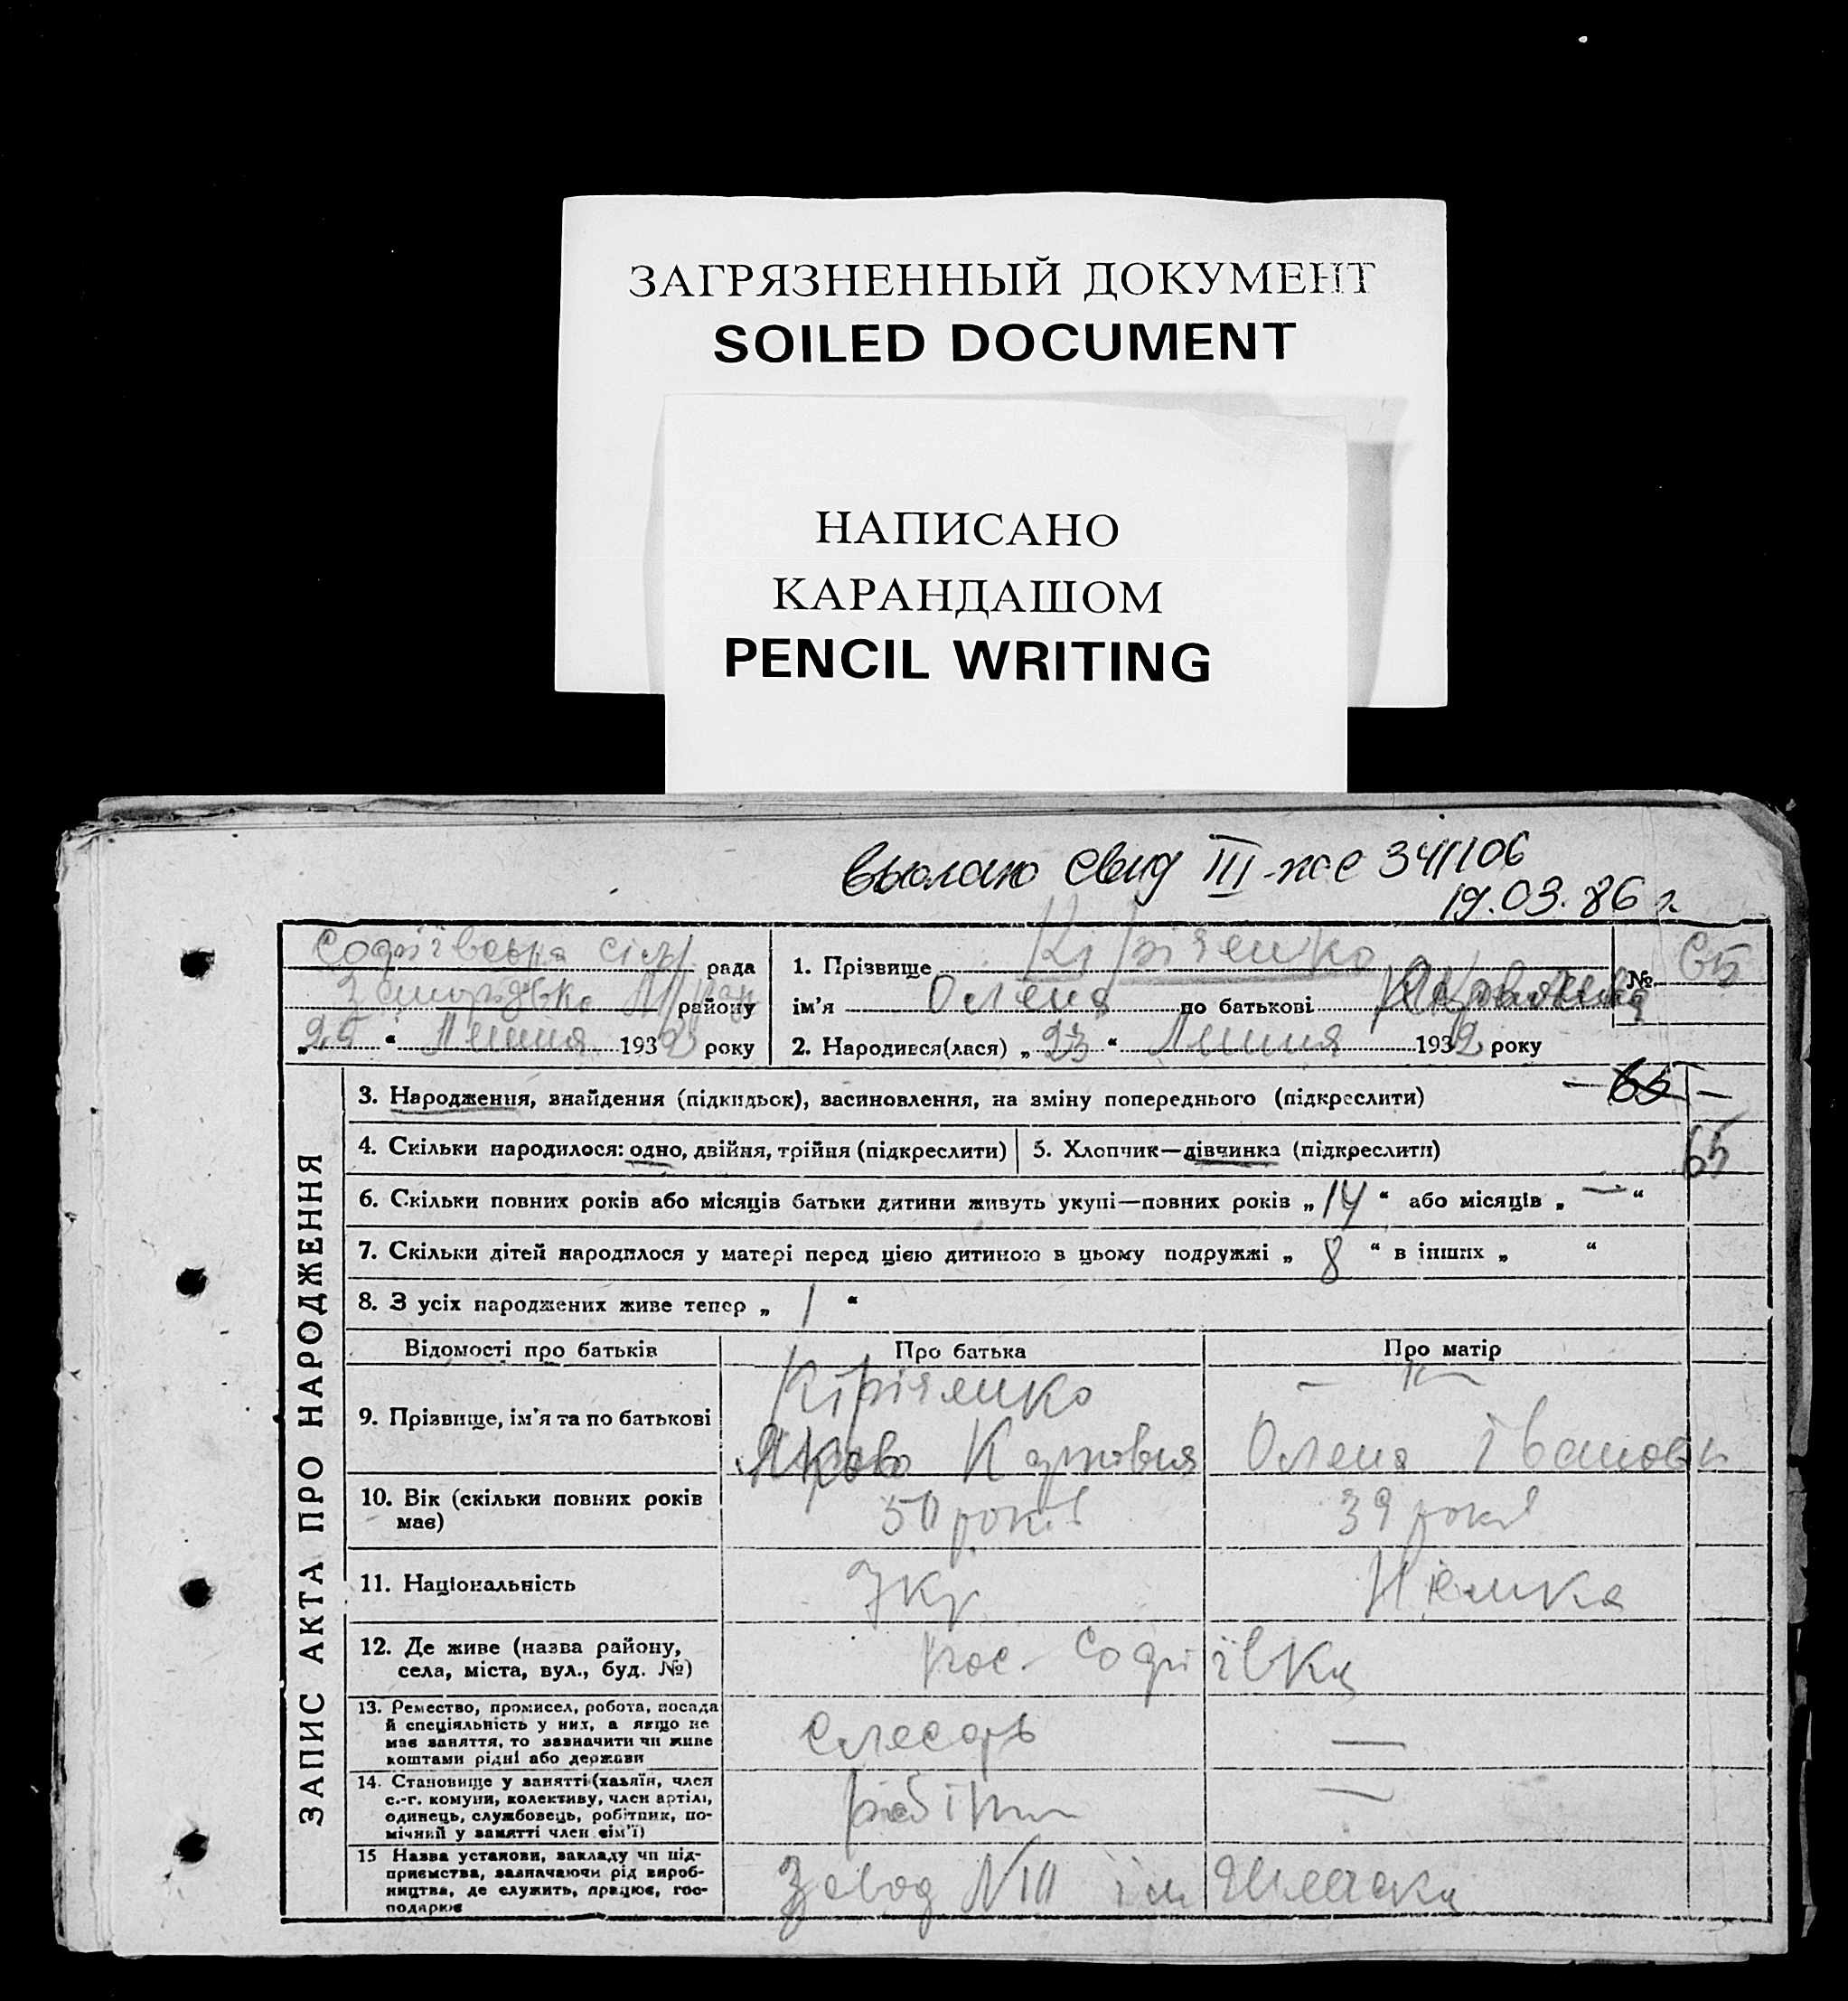 ЗАГРЯЗНЕННЫЙ ДОКУМЕНТ
SOILED DOCUMENT
НАПИСАНО
КАРАНДАШОМ
PENCIL WRITING
III-
19.03.86 г.
Софіївська рада
району
„25“ Липня 1932 року
1. Прізвище Кіріченко
№ 65
ім'я Олена по батькові Яковлевна
2. Народився(лася) „23“ Липня 1932 року
ЗАПИС АКТА ПРО НАРОДЖЕННЯ
3. Народження, знайдення (підкидьок), засиновлення, на зміну попереднього (підкреслити)
65
4. Скільки народилося: одно, двійня, трійня (підкреслити)
5. Хлопчик—дівчинка (підкреслити)
6. Скільки повних років або місяців батьки дитини живуть укупі—повних років „14“ або місяців „—“
7. Скільки дітей народилося у матері перед цією дитиною в цьому подружжі „8“ в інших „ “
8. З усіх народжених живе тепер „1“
Відомості про батьків
Про батька
Про матір
9. Прізвище, ім'я та по батькові
Кіріченко
— „ —
Яков
Олена Іванов
10. Вік (скільки повних років
має)
50 років
39 років
11. Національність
Укр
Німка
12. Де живе (назва району,
села, міста, вул., буд. №)
пос. Софіївка
13. Ремество, промисел, робота, посада
й спеціяльність у них, а якщо не
має заняття, то зазначити чи живе
коштами рідні або держави
Слесарь
—
14. Становище у занятті (хазяїн, член
с.-г. комуни, колективу, член артілі,
одинець, службовець, робітник, по-
мічний у занятті член сім'ї)
робітник
—
15 Назва установи, закладу чи під-
приємства, зазначаючи рід вироб-
ництва, де служить, працює, гос-
подарює
Завод №10 ім